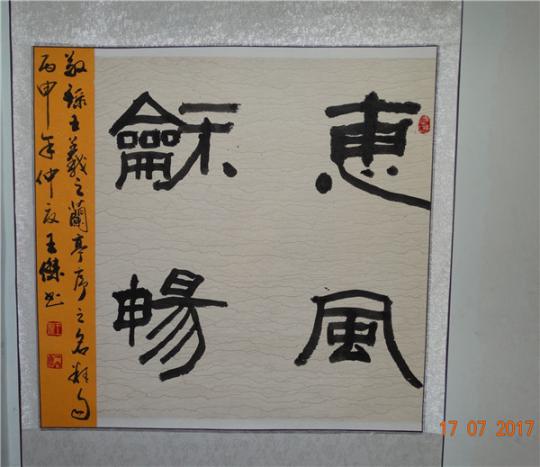 惠風
龢暢
敬錄王羲之蘭亭序之名句
丙申年仲夏王傑书
17 07 2017